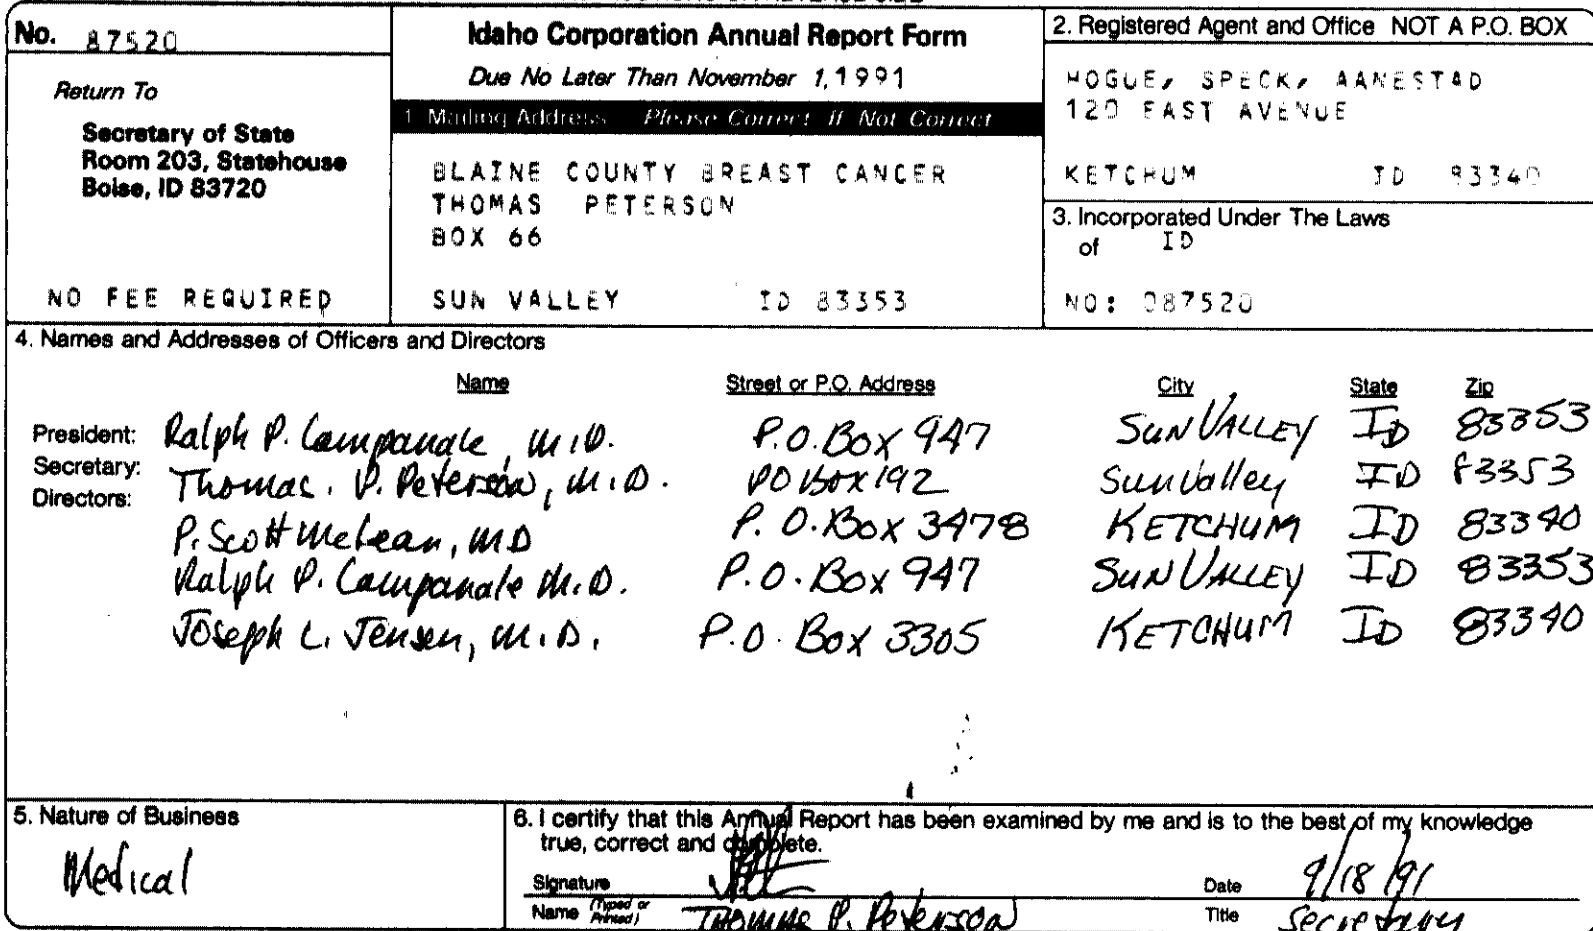 No. 87520
Return To
Secretary of State
Room 203, Statehouse
Boise, ID 83720
NO FEE REQUIRED
Idaho Corporation Annual Report Form
Due No Later Than November 1, 1991
1. Mailing Address Please Correct If Not Correct
BLAINE COUNTY BREAST CANCER
THOMAS PETERSON
BOX 66
SUN VALLEY ID 83353
2. Registered Agent and Office NOT A P.O. BOX
HOGUE, SPECK, AANESTAD
120 EAST AVENUE
KETCHUM ID 83340
3. Incorporated Under The Laws
of ID
NO: 087520
4. Names and Addresses of Officers and Directors
Name Street or P.O. Address City State Zip
President: Ralph P. Campanale, M.D. P.O. Box 947 Sun Valley ID 83353
Secretary: Thomas. P. Peterson, M.D. PO Box 192 Sun Valley ID 83353
Directors:
P. Scott McLean, MD P.O. Box 3478 KETCHUM ID 83340
Ralph P. Campanale M.D. P.O. Box 947 Sun Valley ID 83353
Joseph L. Jensen, M.D. P.O. Box 3305 KETCHUM ID 83340
5. Nature of Business
Medical
6. I certify that this Annual Report has been examined by me and is to the best of my knowledge
true, correct and complete.
Signature Date 9/18/91
Name (Typed or Printed) Thomas P. Peterson Title Secretary